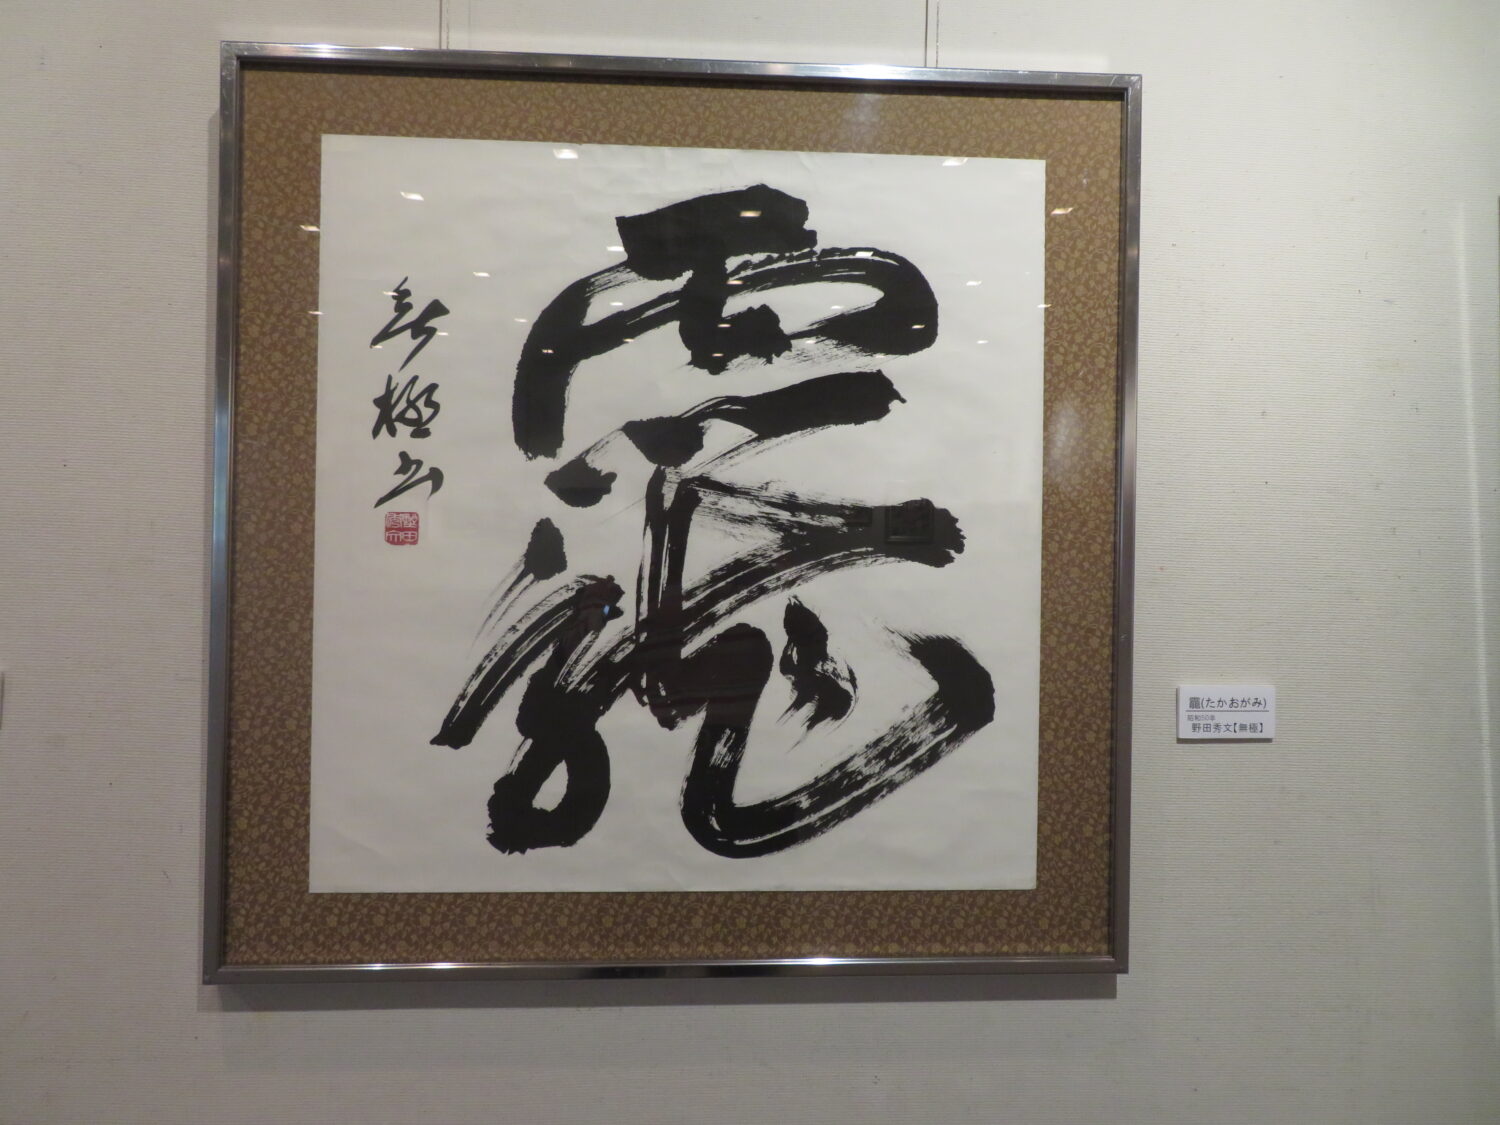 龗
無極書
野田秀文
龗(たかおがみ)
昭和50年
野田秀文【無極】